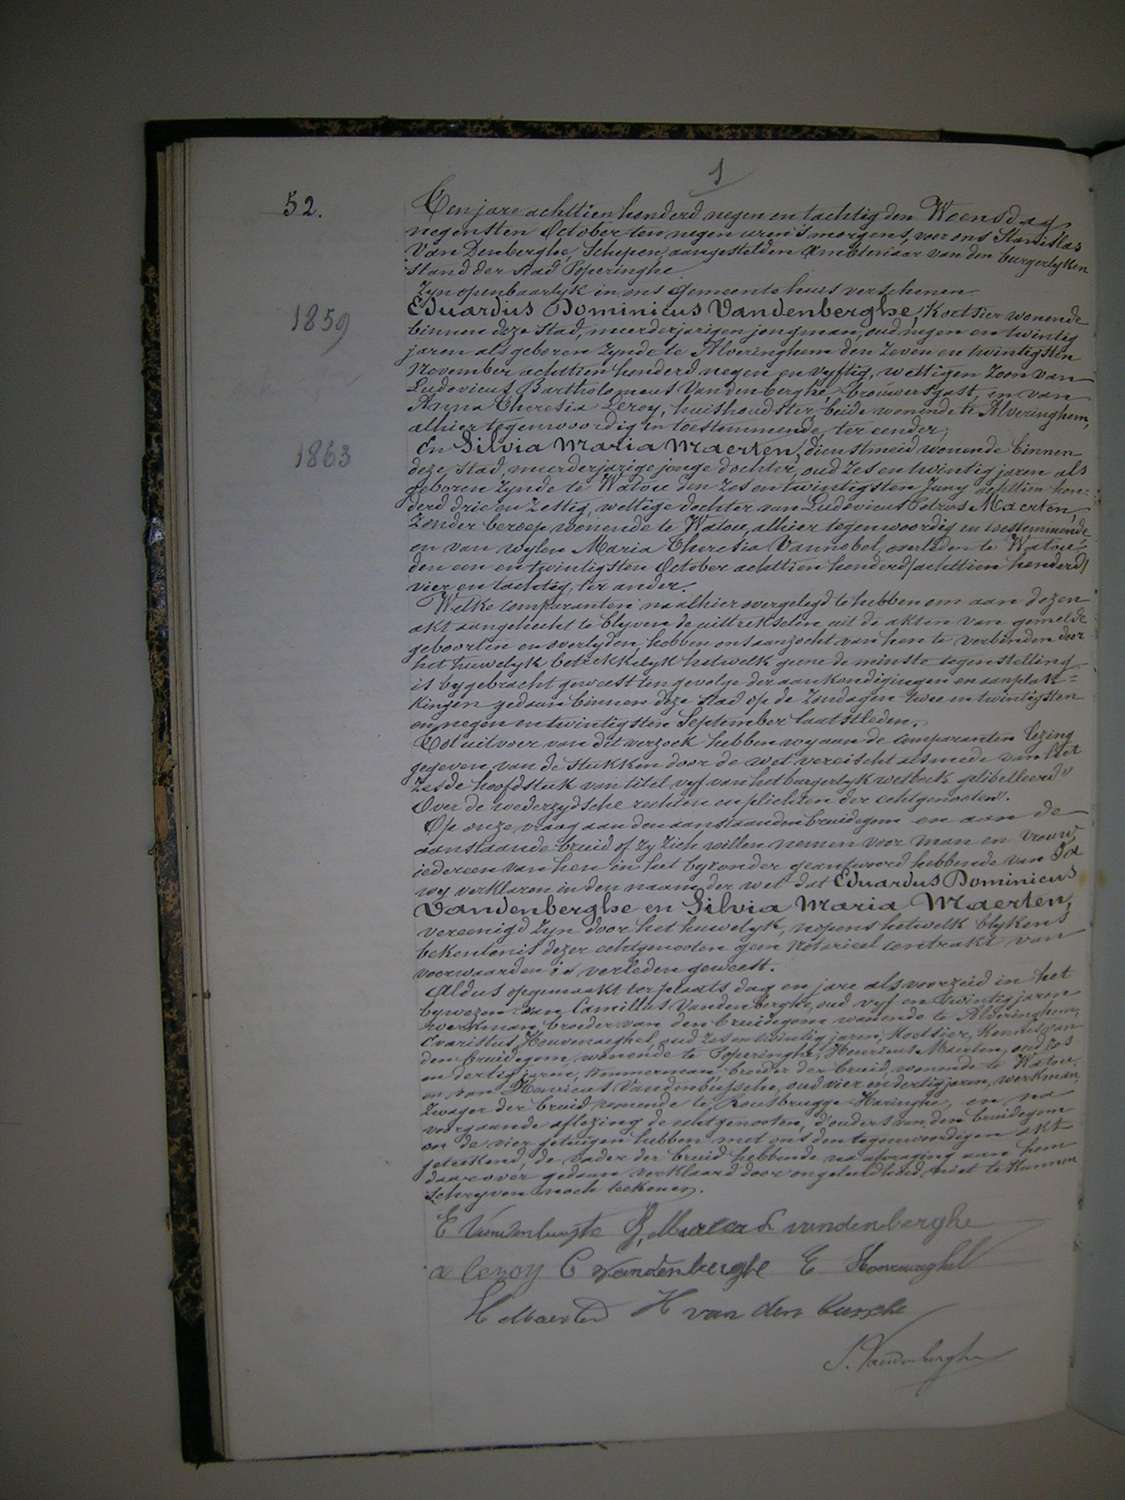 1
52.
Ten jare achttien honderd negen en tachtig den Woensdag
negensten October ten negen uren 's morgens, voor ons Stanislas
Van Denberghe, Schepen, aangestelden Ambtenaar van den burgerlyken
stand der stad Poperinghe
Zyn openbaarlyk in ons Gemeentehuis verschenen
1859
Eduardus Dominicus Vandenberghe, Koetsier wonende
binnen deze stad, meerderjarigen jongman, oud negen en twintig
jaren als geboren zynde te Alveringhem den zeven en twintigsten
November achttien honderd negen en vyftig, wettigen zoon van
Ludovicus Bartholomeus Vandenberghe brouwersgast, en van
Anna Theresia Leroy, huishoudster beide wonende te Alveringhem,
alhier tegenwoordig en toestemmende, ter eender;
1863
En Silvia Maria Maerten, dienstmeid wonende binnen
deze stad, meerderjarige jonge dochter, oud zes en twintig jaren als
geboren zynde te Watou den zes en twintigsten Juny achttien hon-
derd drie en zestig, wettige dochter van Ludovicus Petrus Maerten,
zonder beroep, wonende te Watou, alhier tegenwoordig en toestemmende
en van wylen Maria Theresia Vannobel, overleden te Watou
den een en twintigsten October achttien honderd/achttien honderd/
vier en tachtig, ter ander.
Welke comparanten na alhier overgelegd te hebben om aan dezen
akt aangehecht te blyven de uittrekselen uit de akten van gemelde
geboorten en overlyden, hebben ons aanzocht van hen te verbinden door
het huwelyk betrekkelyk hetwelk geene de minste tegenstelling
is bygebracht geweest ten gevolge der aankondigingen en aanplak=
kingen gedaan binnen deze stad op de zondagen twee en twintigsten
en negen en twintigsten September laatstleden.
Tot uitvoer van dit verzoek hebben wy aan de comparanten lezing
gegeven van de stukken door de wet vereischt alsmede van het
zesde hoofdstuk van titel vyf van het burgerlyk wetboek gelibelleerd "
Over de wederzydsche rechten en plichten der echtgenooten".
Op onze vraag aan den aanstaanden bruidegom en aan de
aanstaande bruid of zy zich willen nemen voor man en vrouw,
iedereen van hen in het byzonder geantwoord hebbende van Ja
wy verklaren in den naam der wet dat Eduardus Dominicus
Vandenberghe en Silvia Maria Maerten,
vereenigd zyn door het huwelyk, nopens hetwelk blykens
bekentenis dezer echtgenooten geen notarieel contrakt van
voorwaarden is verleden geweest.
Aldus opgemaakt ter plaats dag en jare als voorzeid in het
bywezen van Camillus Vandenberghe, oud vyf en twintig jaren
werkman, broeder van den bruidegom wonende te Alveringhem,
Evaristus Houvenaeghel, oud zes en twintig jaren, Koetsier, kennis van
den bruidegom, wonende te Poperinghe, Henricus Maerten, oud zes
en dertig jaren, timmerman, broeder der bruid, wonende te Watou
en van Henricus Vandenbussche, oud vier en dertig jaren, werkman,
zwager der bruid wonende te Rousbrugge Haringhe, en na
voorgaande aflezing de echtgenooten, d'ouders van den bruidegom
en de vier getuigen hebben met ons den tegenwoordigen akt
geteekend, de vader der bruid hebbende na afvraging aan hem
daarover gedaan verklaard door ongeleerdheid niet te kunnen
schryven noch teekenen.
E Vandenberghe S, Maerten L vandenberghe
a leroy C vandenberghe E
H Maerten H van den bussche
S. Vandenberghe